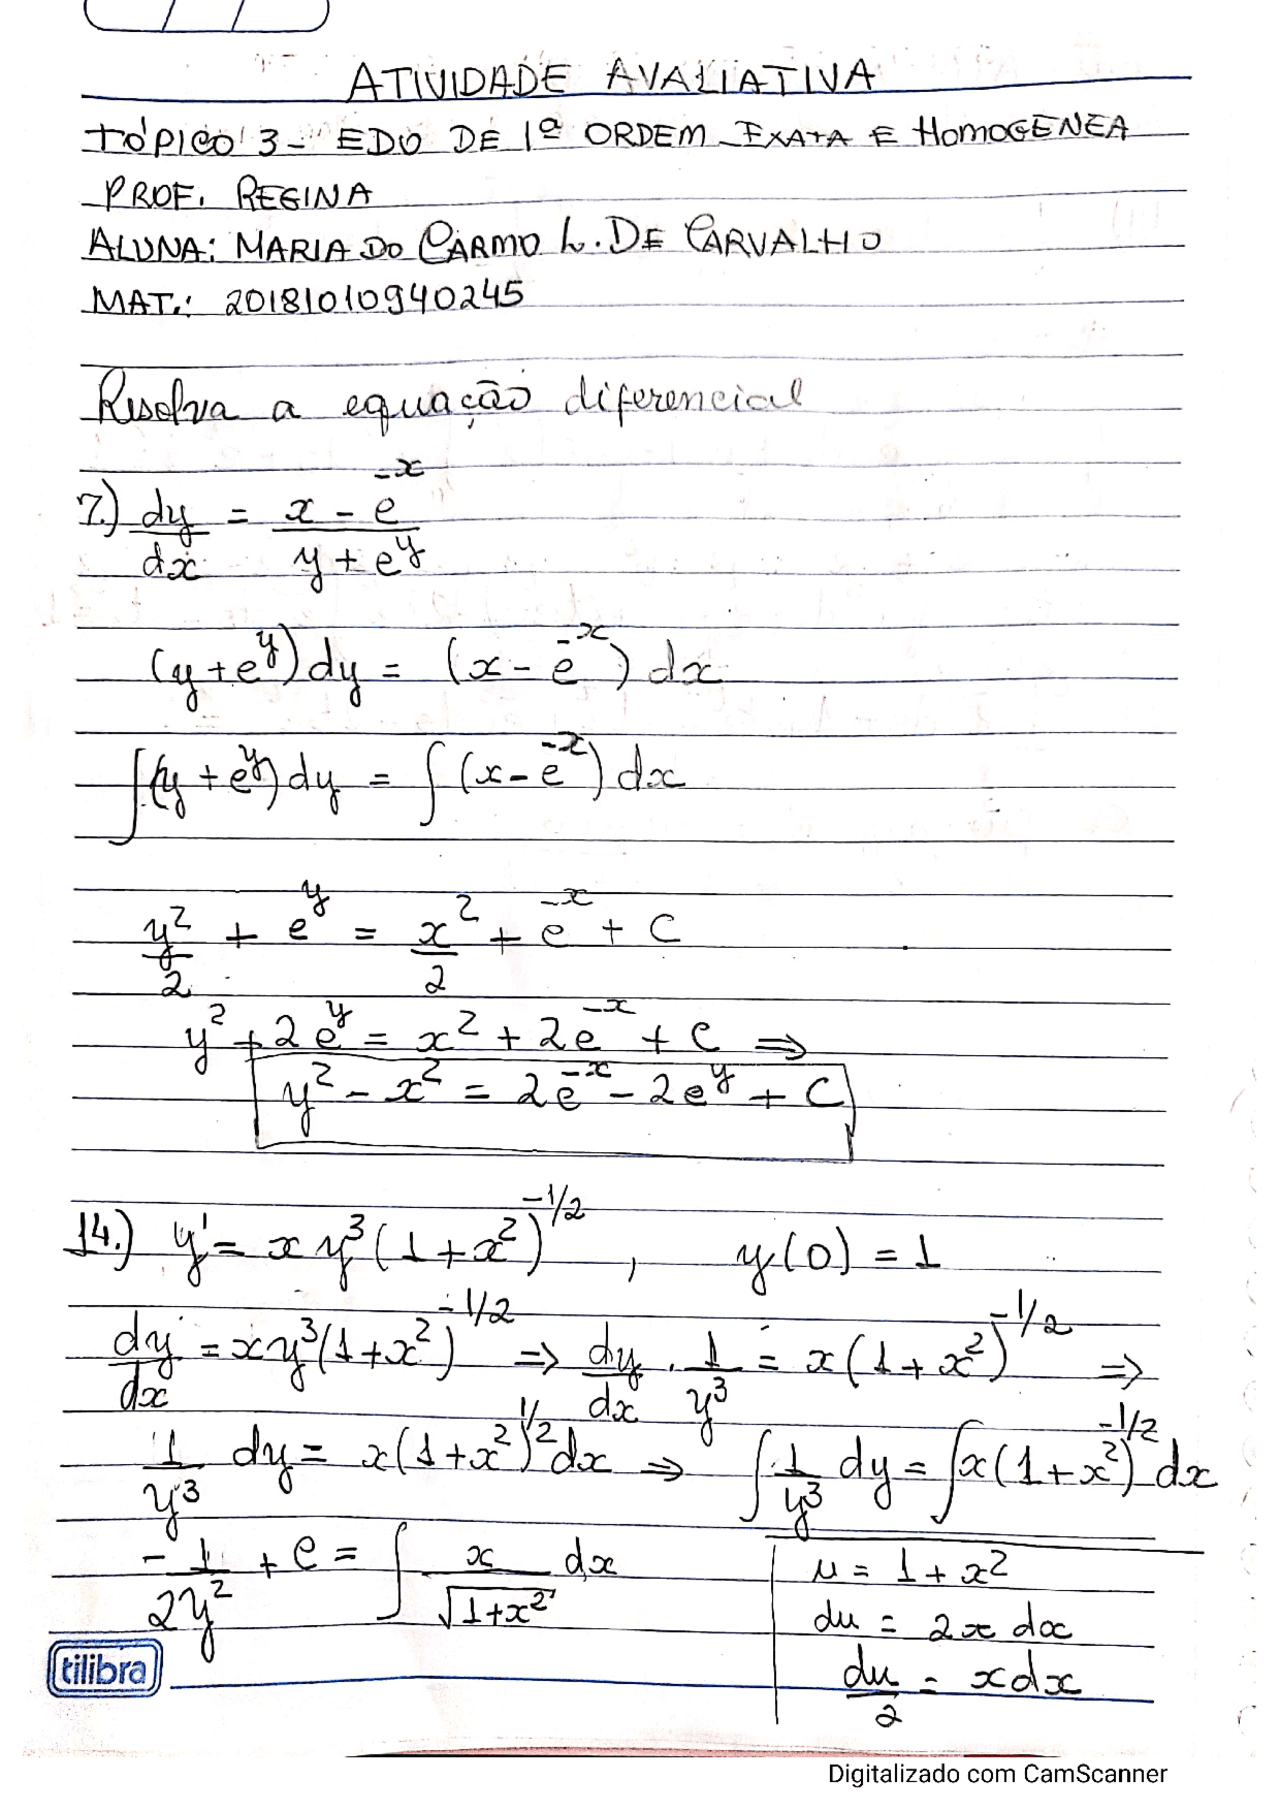 ATIVIDADE AVALIATIVA
TÓPICO 3 - EDO DE 1ª ORDEM - EXATA E HOMOGENEA
PROF. REGINA
ALUNA: MARIA DO CARMO L. DE CARVALHO
MAT.: 20181010940245
Resolva a equação diferencial
7.) dy/dx = (x - e^-x)/(y + e^y)
(y + e^y) dy = (x - e^-x) dx
∫(y + e^y) dy = ∫(x - e^-x) dx
y²/2 + e^y = x²/2 + e^-x + C
y² + 2e^y = x² + 2e^-x + C ⇒
y² - x² = 2e^-x - 2e^y + C
14.) y' = x y³ (1 + x²)^-1/2 , y(0) = 1
dy/dx = x y³ (1 + x²)^-1/2 ⇒ dy/dx . 1/y³ = x (1 + x²)^-1/2 ⇒
1/y³ dy = x (1 + x²)^1/2 dx ⇒ ∫ 1/y³ dy = ∫ x (1 + x²)^-1/2 dx
-1/2y² + C = ∫ x/√(1+x²) dx
u = 1 + x²
du = 2x dx
du/2 = x dx
tilibra
Digitalizado com CamScanner